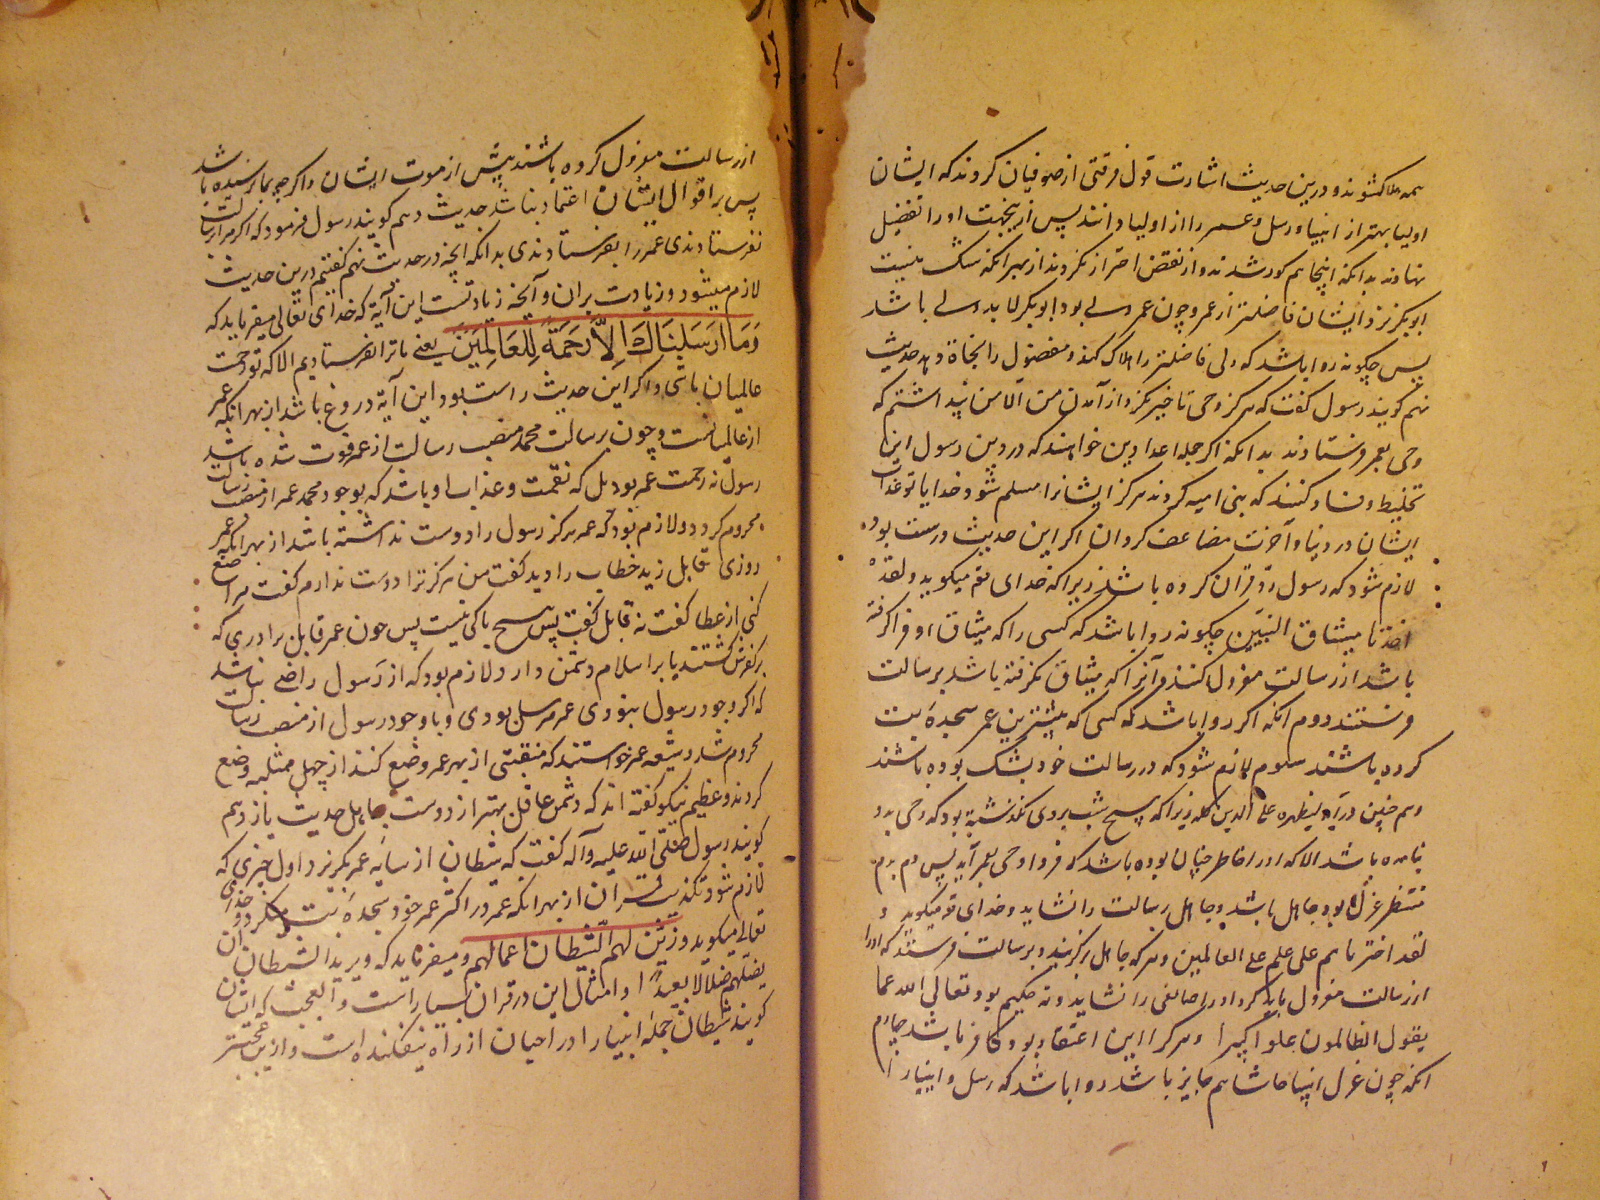 همه هلاک شوند و درین حدیث اشارت قول فرقتی از صوفیان کردند که ایشان
اولیا بهتر از انبیا و رسل و عمر را از اولیا دانند پس ازینجهت او را تفضیل
نهادند بدانکه اینجا هم کور شدند و از نقض احتراز نکردند از بهر آنکه شک نیست
ابوبکر نزد ایشان فاضلتر از عمر و چون عمر ولی بود ابوبکر لابد ولی باشد
پس چگونه روا باشد که ولی فاضلتر را هلاک کند و مفضول را نجاة دهد حدیث
نهم گویند رسول گفت که هرگز وحی تاخیر نکرد از آمدن من الا من پنداشتم که
وحی بعمر فرستادند بدانکه اگر جمله اعداء دین خواهند که در دین رسول این
تخلیط و فساد کنند که بنی امیه کردند هرگز ایشانرا مسلم نشود خدایا تو عذاب
ایشان در دنیا و آخرت مضاعف گردان اگر این حدیث درست بوده
لازم شود که رسول رد قرآن کرده باشد زیرا که خدای تع میگوید و لقد
اخذنا میثاق النبیین چگونه روا باشد که کسی را که میثاق او فرا گرفته
باشد از رسالت معزول کنند و آنرا که میثاق نگرفته باشد برسالت
فرستند دوم آنکه اگر روا باشد که کسی که بیشترین عمر سجدهٔ بت
کرده باشند سیوم لازم شود که در رسالت خود بشک بوده باشند
و هم چنین در آیه لیظهره علی الدین کله زیرا که هیچ شب بروی نگذشته بود که وحی بدو
نیامده باشد الا که او را خاطر چنان بوده باشد که فردا وحی بعمر آید پس دم بدم
منتظر عزل بود جاهل باشد و جاهل رسالت را نشاید و خدای تع میگوید و
لقد اخترناهم علی علم علی العالمین و هر که جاهل برگزیند و برسالت فرستد که او را
از رسالت معزول باید کرد او را صانعی را نشاید و نه حکیم بود تعالی الله عما
یقول الظالمون علوا کبیرا و هر کرا این اعتقاد بود کافر باشد چهارم
آنکه چون عزل انبیا حاشاهم جایز باشد روا باشد که رسل و انبیا را
از رسالت معزول کرده باشند پیش از موت ایشان و اگر چه بما نرسیده باشد
پس بر اقوال ایشان اعتماد نباشد حدیث دهم گویند رسول فرمود که اگر مرا رسالت
نفرستادندی عمر را بفرستادندی بدانکه آنچه در حدیث نهم گفتیم درین حدیث
لازم میشود و زیادت بران و آنچه زیادتست این آیة که خدای تعالی میفرماید که
وَمَا اَرسَلنَاكَ اِلَّا رَحمَةً لِلعَالَمِینَ یعنی ما ترا نفرستادیم الا که تو رحمت
عالمیان باشی و اگر این حدیث راست بود این آیة دروغ باشد از بهر آنکه عمر
از عالمیانست و چون برسالت محمد منصب رسالت از عمر فوت شده باشد
رسول نه رحمت عمر بود بل که نقمت و عذاب او باشد که بوجود محمد عمر از منصب رسالت
محروم گردد و لازم بود که عمر هرگز رسول را دوست نداشته باشد از بهر آنکه عمر
روزی قابل زید خطاب را دید گفت من هرگز ترا دوست ندارم گفت مرا منع
کنی از عطا گفت نه قابل گفت پس هیچ باکی نیست پس چون عمر قابل برادری که
بر کفرش کشتند یا بر اسلام دشمن دارد لازم بود که از رسول راضی نباشد
که اگر وجود رسول نبودی عمر مرسل بودی و با وجود رسول از منصب رسالت
محروم شد و شیعه عمر خواستند که منقبتی از بهر عمر وضع کنند از جهل مثلبه وضع
کردند و عظیم نیکو گفته اند که دشمن عاقل بهتر از دوست جاهل حدیث یازدهم
گویند رسول صلّی الله علیه وآله گفت که شیطان از سایه عمر بگریزد اول چیزی که
لازم شود تکذیب قرآن از بهر آنکه عمر در اکثر عمر خود سجدهٔ بت میکرد و خدای
تعالی میگوید و زیّن لهم الشّیطان اعمالهم و میفرماید که و یرید الشیطان ان
یضلّهم ضلالا بعیدًا و امثال این در قرآن بسیار است و العجب که ایشان
گویند شیطان جملهٔ انبیا را در احیان از راه بیفکنده است و ازین عجبتر